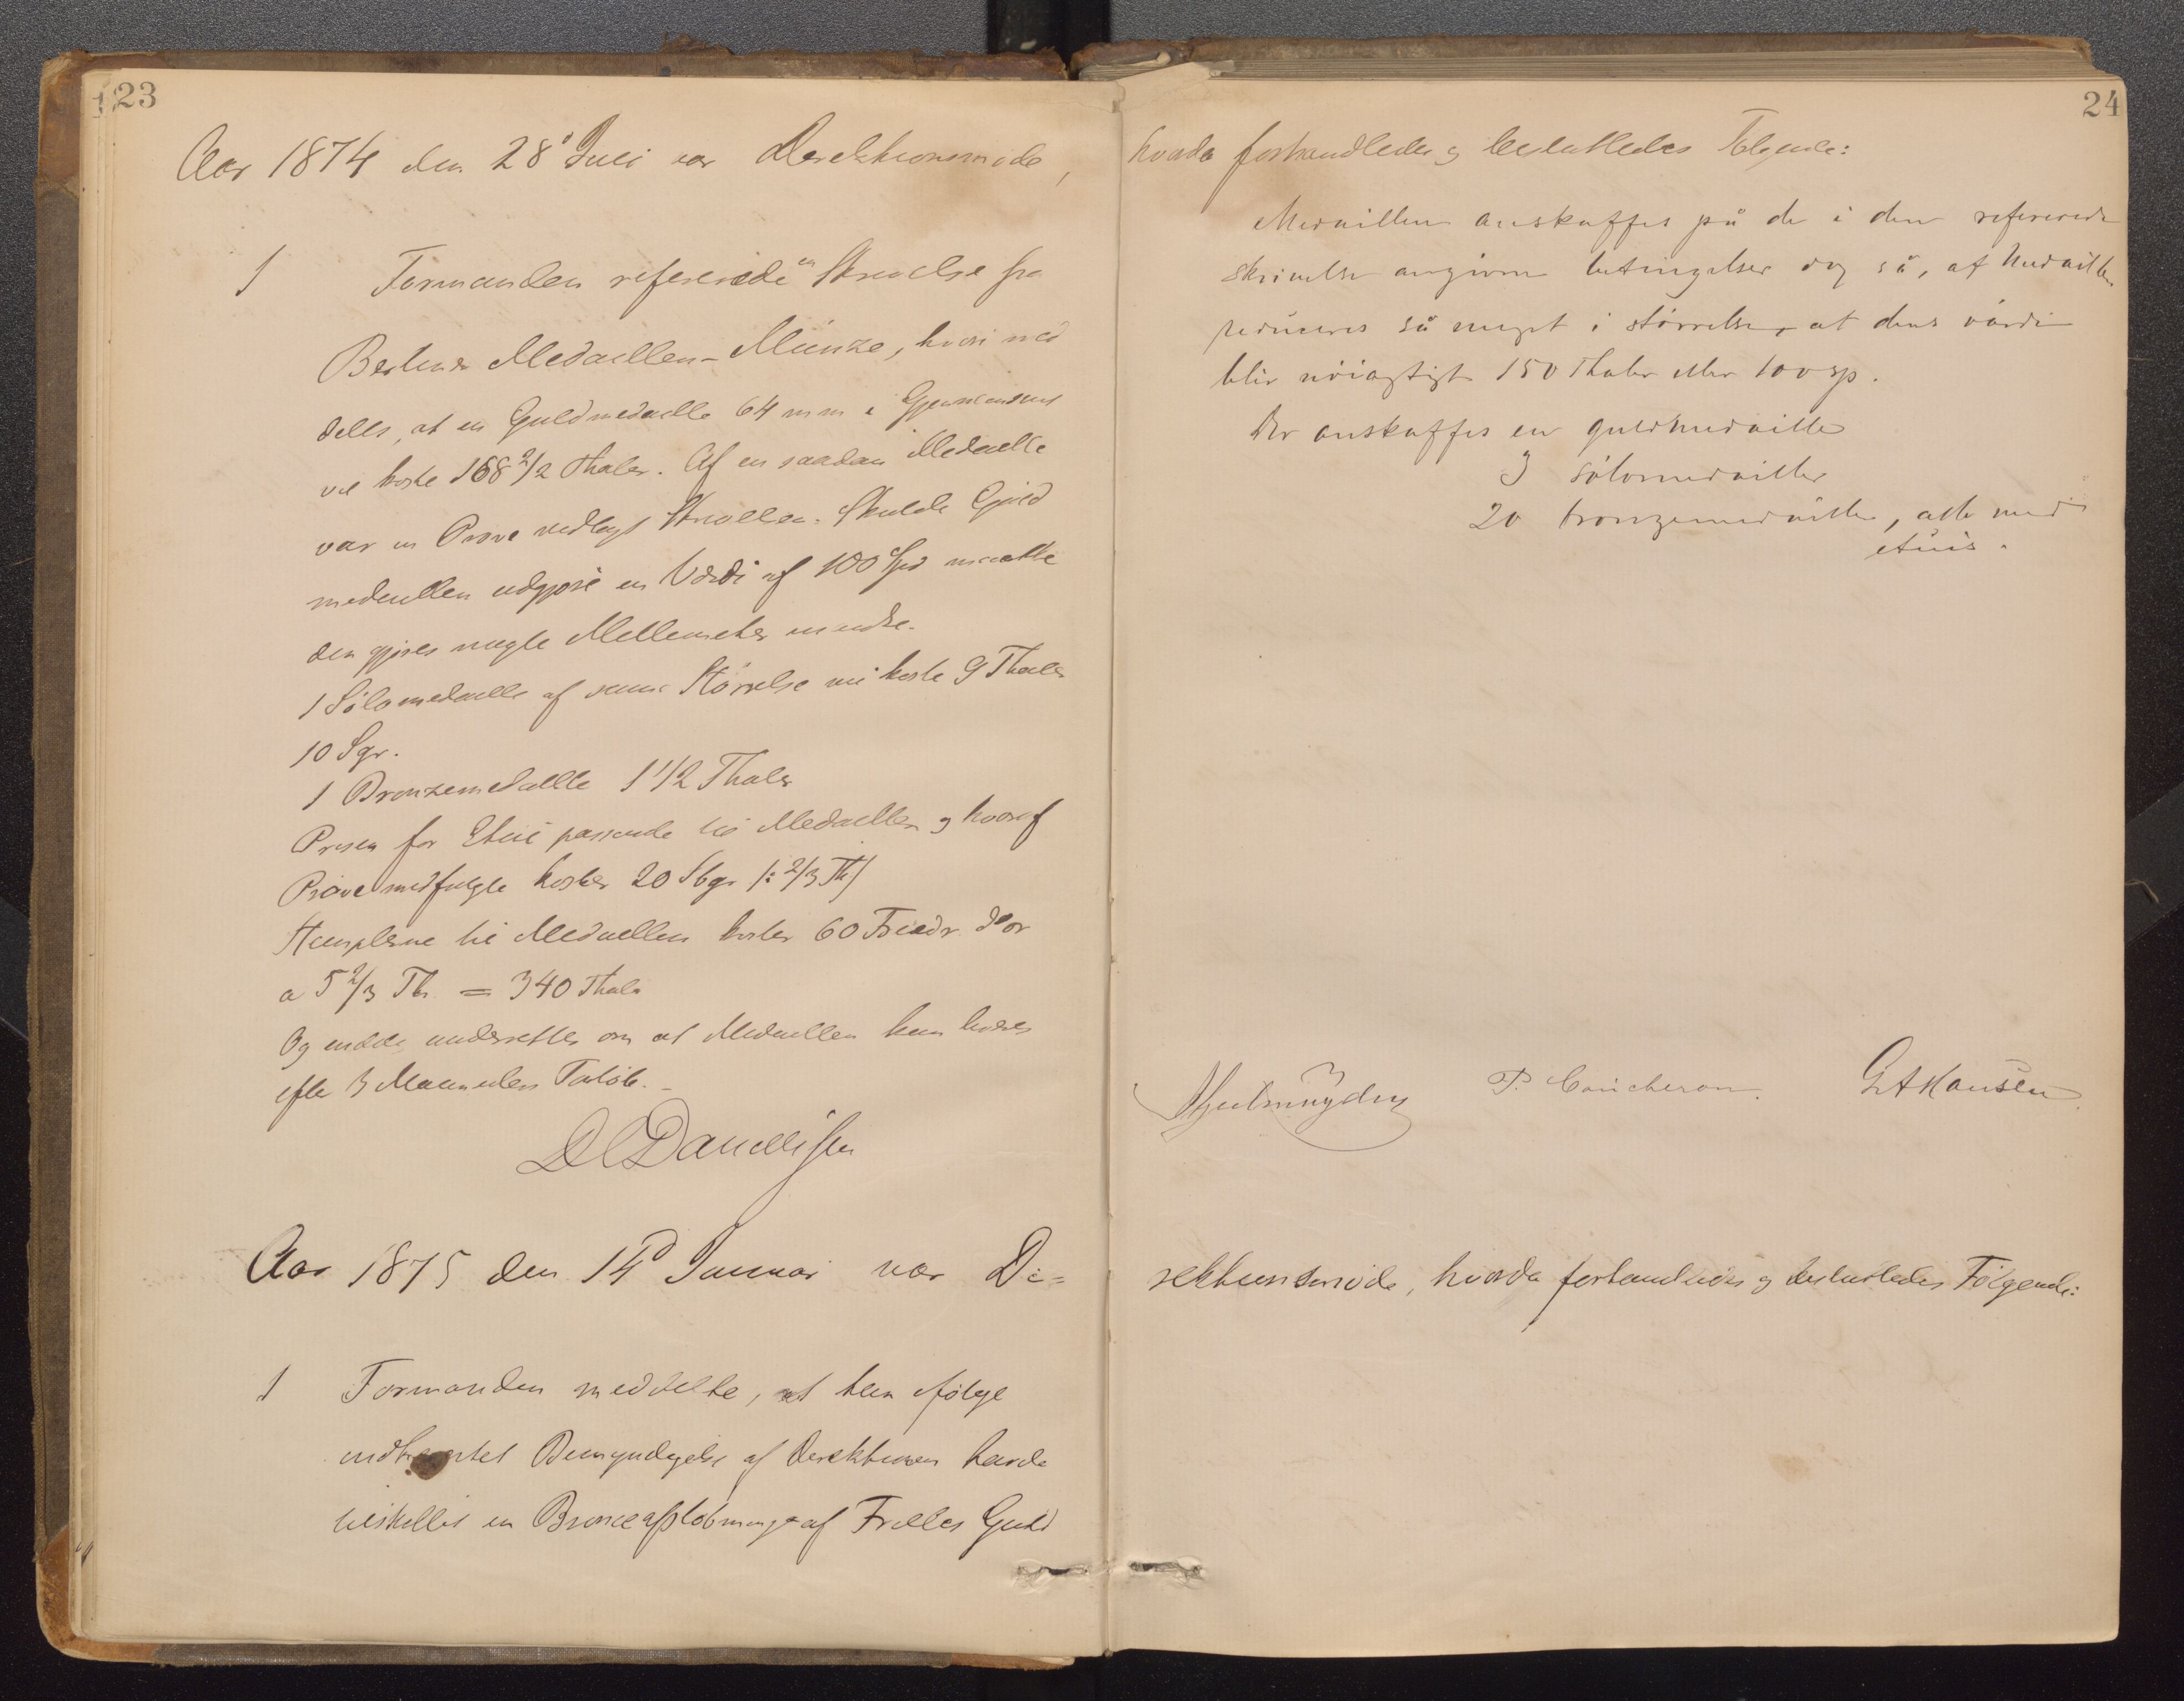 123
Aar 1874 den 28d Juli var Direktionsmøde,
1 Formanden refererede en Skrivelse fra
Berliner Medaillen-Münze, hvori med
deles, at en Guldmedaille 64 mm i Gjennemsnit
vil koste 168 2/2 Thaler. Af en saadan Medaille
var en Prøve vedlagt Skrivelsen. Skulde Guld
medaillen udgjøre en Værdi af 100 Spd maatte
den gjøres nogle Millemeter mindre.
1 Sölvmedaille af samme Störrelse vil koste 9 Thaler
10 Sgr.
1 Bronzemedaille 1 1/2 Thaler
Prisen for Etui passende til Medaillen og hvoraf
Prøve medfulgte koster 20 Sbgr /: 2/3 Th/
Stemplerne til Medaillen koster 60 Friedr. d'or
a 5 2/3 Th. = 340 Thaler
Og endelig underrettes om at Medaillen kan leveres
efter 3 Maaneders Forløb.
DCDanielssen
Aar 1875 den 14d Januar var Di=
1 Formanden meddelte, at han ifølge
indhentet Bemyndigelse af Direktionen havde
bestillet en Bronceafstøbning af Frieles Guld
24
hvorda forhandledes og besluttedes Følgende:
Medaillen anskaffes på de i den refererede
skrivelse angivne betingelser dog så, at Medaillen
reduceres så meget i störrelse, at dens værdi
blir nöiagtigt 150 Thaler eller 100 sp.
Der anskaffes en guldmedaille
3 sölvmedailler
20 bronzemedailler, alle med
etuis.
P. Coucheron. GAHansen.
rektionsmøde, hvorda forhandledes og besluttedes Følgende: